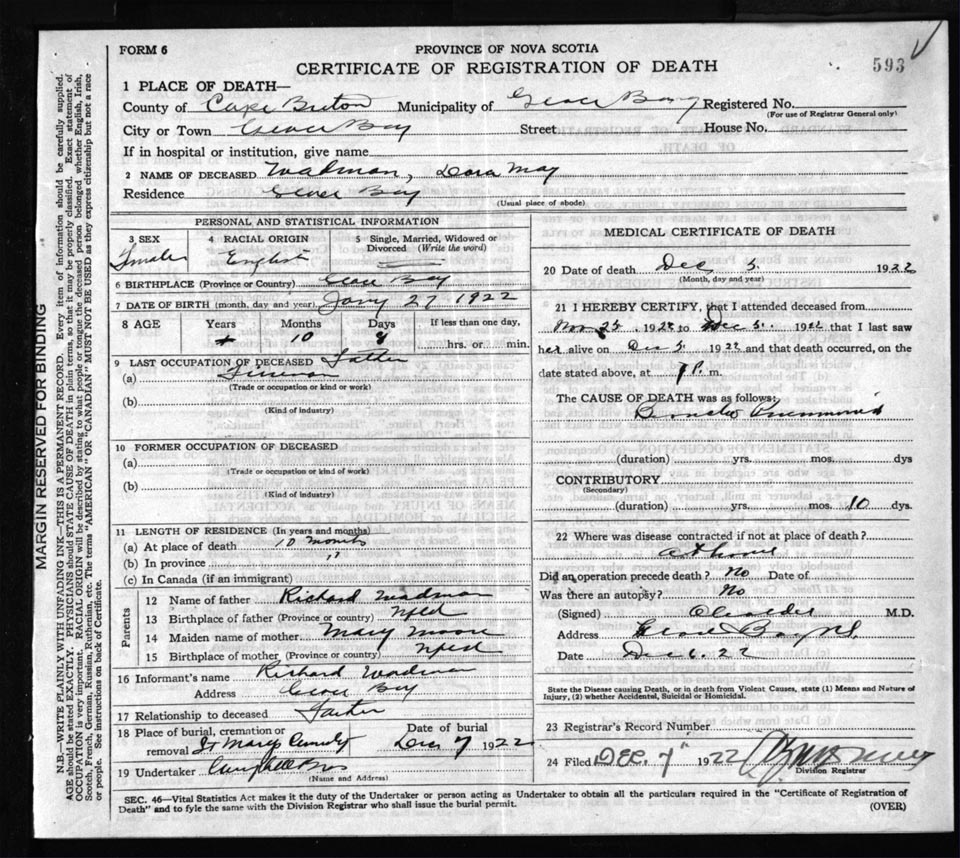 FORM 6
PROVINCE OF NOVA SCOTIA
CERTIFICATE OF REGISTRATION OF DEATH
593
1 PLACE OF DEATH—
County of Cape Breton Municipality of Glace Bay Registered No.
(For use of Registrar General only)
City or Town Glace Bay Street House No.
If in hospital or institution, give name
2 NAME OF DECEASED Wadman, Dora May
Residence Glace Bay
(Usual place of abode)
PERSONAL AND STATISTICAL INFORMATION
3 SEX
4 RACIAL ORIGIN
5 Single, Married, Widowed or Divorced (Write the word)
Female English
6 BIRTHPLACE (Province or Country) Glace Bay
7 DATE OF BIRTH (month, day and year) Jany 27 1922
8 AGE Years Months Days If less than one day,
10 8 hrs. or min.
9 LAST OCCUPATION OF DECEASED Father
(a)
(Trade or occupation or kind or work)
(b)
(Kind of industry)
10 FORMER OCCUPATION OF DECEASED
(a)
(Trade or occupation or kind of work)
(b)
(Kind of industry)
11 LENGTH OF RESIDENCE (In years and months)
(a) At place of death 10 months
(b) In province "
(c) In Canada (if an immigrant)
Parents
12 Name of father Richard Wadman
13 Birthplace of father (Province or country) Nfld
14 Maiden name of mother Mary Moore
15 Birthplace of mother (Province or country) Nfld
16 Informant's name Richard Wadman
Address Glace Bay
17 Relationship to deceased Father
18 Place of burial, cremation or Date of burial
removal St Marys Dec 7 1922
19 Undertaker Campbell Bros
(Name and Address)
MEDICAL CERTIFICATE OF DEATH
20 Date of death Dec 5. 1922
(Month, day and year)
21 I HEREBY CERTIFY, that I attended deceased from
Nov 25 1922 to Dec 5. 1922 that I last saw
her alive on Dec 5 1922 and that death occurred, on the
date stated above, at P. m.
The CAUSE OF DEATH was as follows:
Broncho Pneumonia
(duration) yrs. mos. dys
CONTRIBUTORY
(Secondary)
(duration) yrs. mos. 10 dys.
22 Where was disease contracted if not at place of death?
at home
Did an operation precede death? No Date of
Was there an autopsy? No
(Signed) M.D.
Address Glace Bay NS.
Date Dec 6. 22
State the Disease causing Death, or in death from Violent Causes, state (1) Means and Nature of
Injury, (2) whether Accidental, Suicidal or Homicidal.
23 Registrar's Record Number
24 Filed DEC. 7" 1922
Division Registrar
SEC. 46—Vital Statistics Act makes it the duty of the Undertaker or person acting as Undertaker to obtain all the particulars required in the "Certificate of Registration of
Death" and to fyle the same with the Division Registrar who shall issue the burial permit.
(OVER)
MARGIN RESERVED FOR BINDING
N.B.—WRITE PLAINLY WITH UNFADING INK—THIS IS A PERMANENT RECORD. Every item of information should be carefully supplied.
AGE should be stated EXACTLY. PHYSICIANS should STATE CAUSE OF DEATH in plain terms, so that it may be properly classified. Exact statement of
OCCUPATION is very important. RACIAL ORIGIN will be described by stating to what people or tongue the deceased person belonged whether English, Irish,
Scotch, French, German, Russian, Ruthenian, etc. The terms "AMERICAN" OR "CANADIAN" MUST NOT BE USED as they express citizenship but not a race
or people. See instructions on back of Certificate.